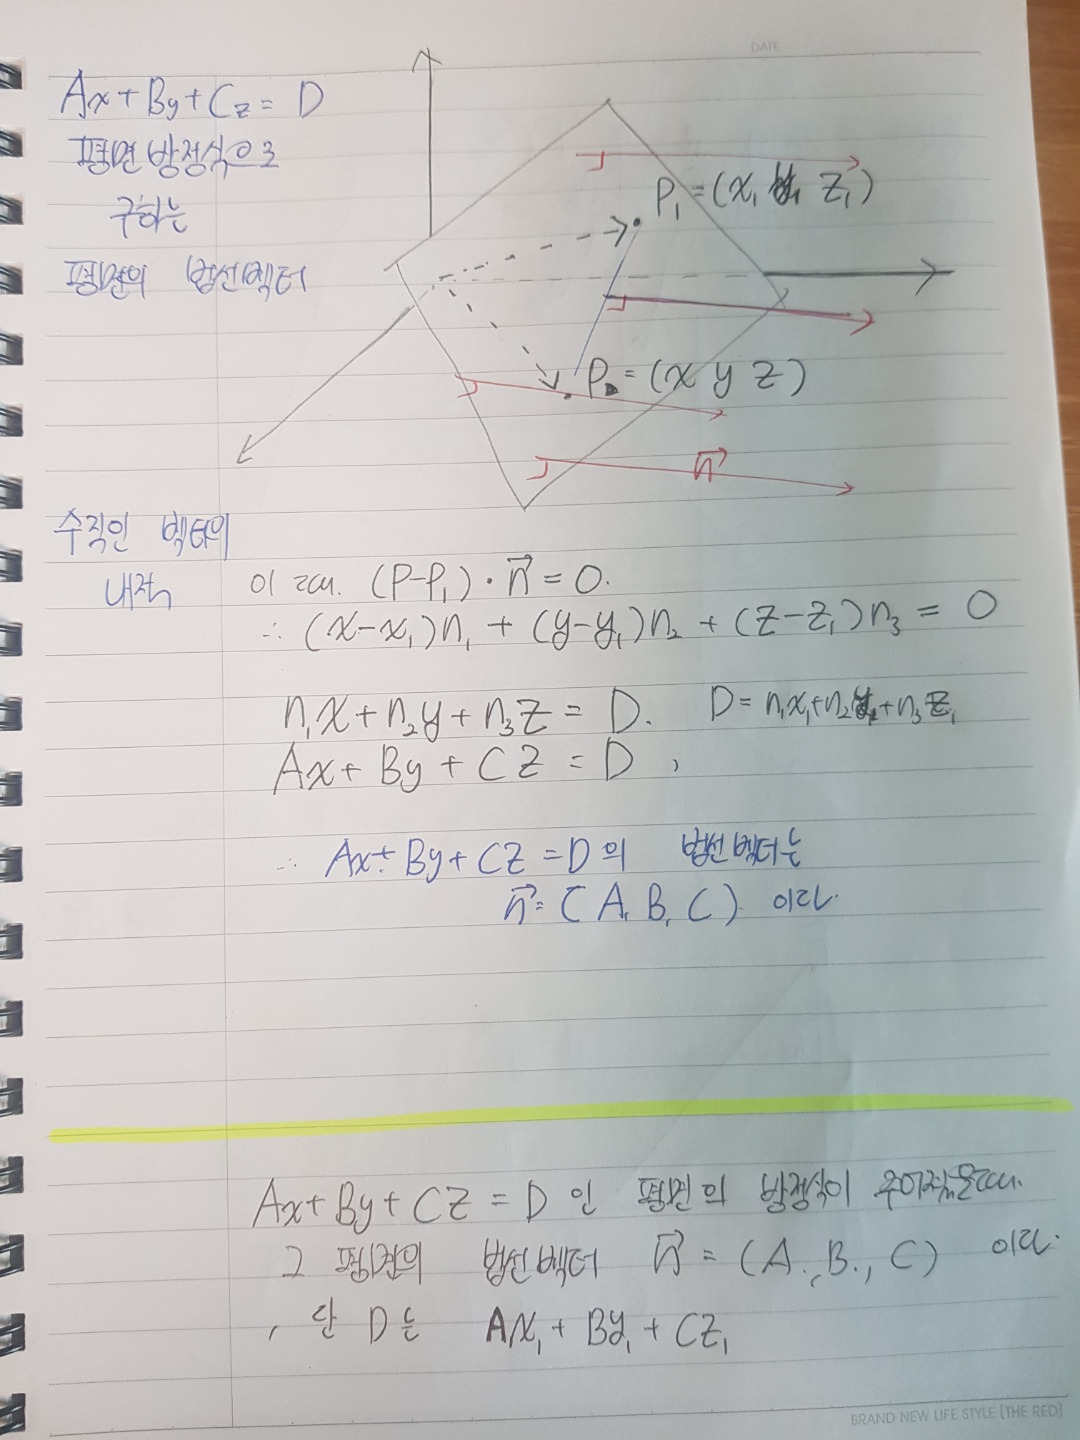 DATE
Ax+By+Cz= D
평면방정식으로
구하는
평면의 법선벡터
P₁=(x₁ y₁ z₁)
P =(x y z)
n⃗
수직인 벡터의
내적
이 고서. (P-P₁)·n⃗=0.
∴ (x-x₁)n₁ + (y-y₁)n₂ + (z-z₁)n₃ = 0
n₁x+n₂y+n₃z = D. D= n₁x₁+n₂y₁+n₃z₁
Ax+ By + Cz = D ,
∴ Ax+By+Cz=D의 법선벡터는
n⃗=(A, B, C) 이다.
Ax+By+Cz=D인 평면의 방정식이 주어졌을때.
그 평면의 법선벡터 n⃗=(A, B, C) 이다.
, 단 D는 Ax₁+By₁+Cz₁
BRAND NEW LIFE STYLE [THE RED]